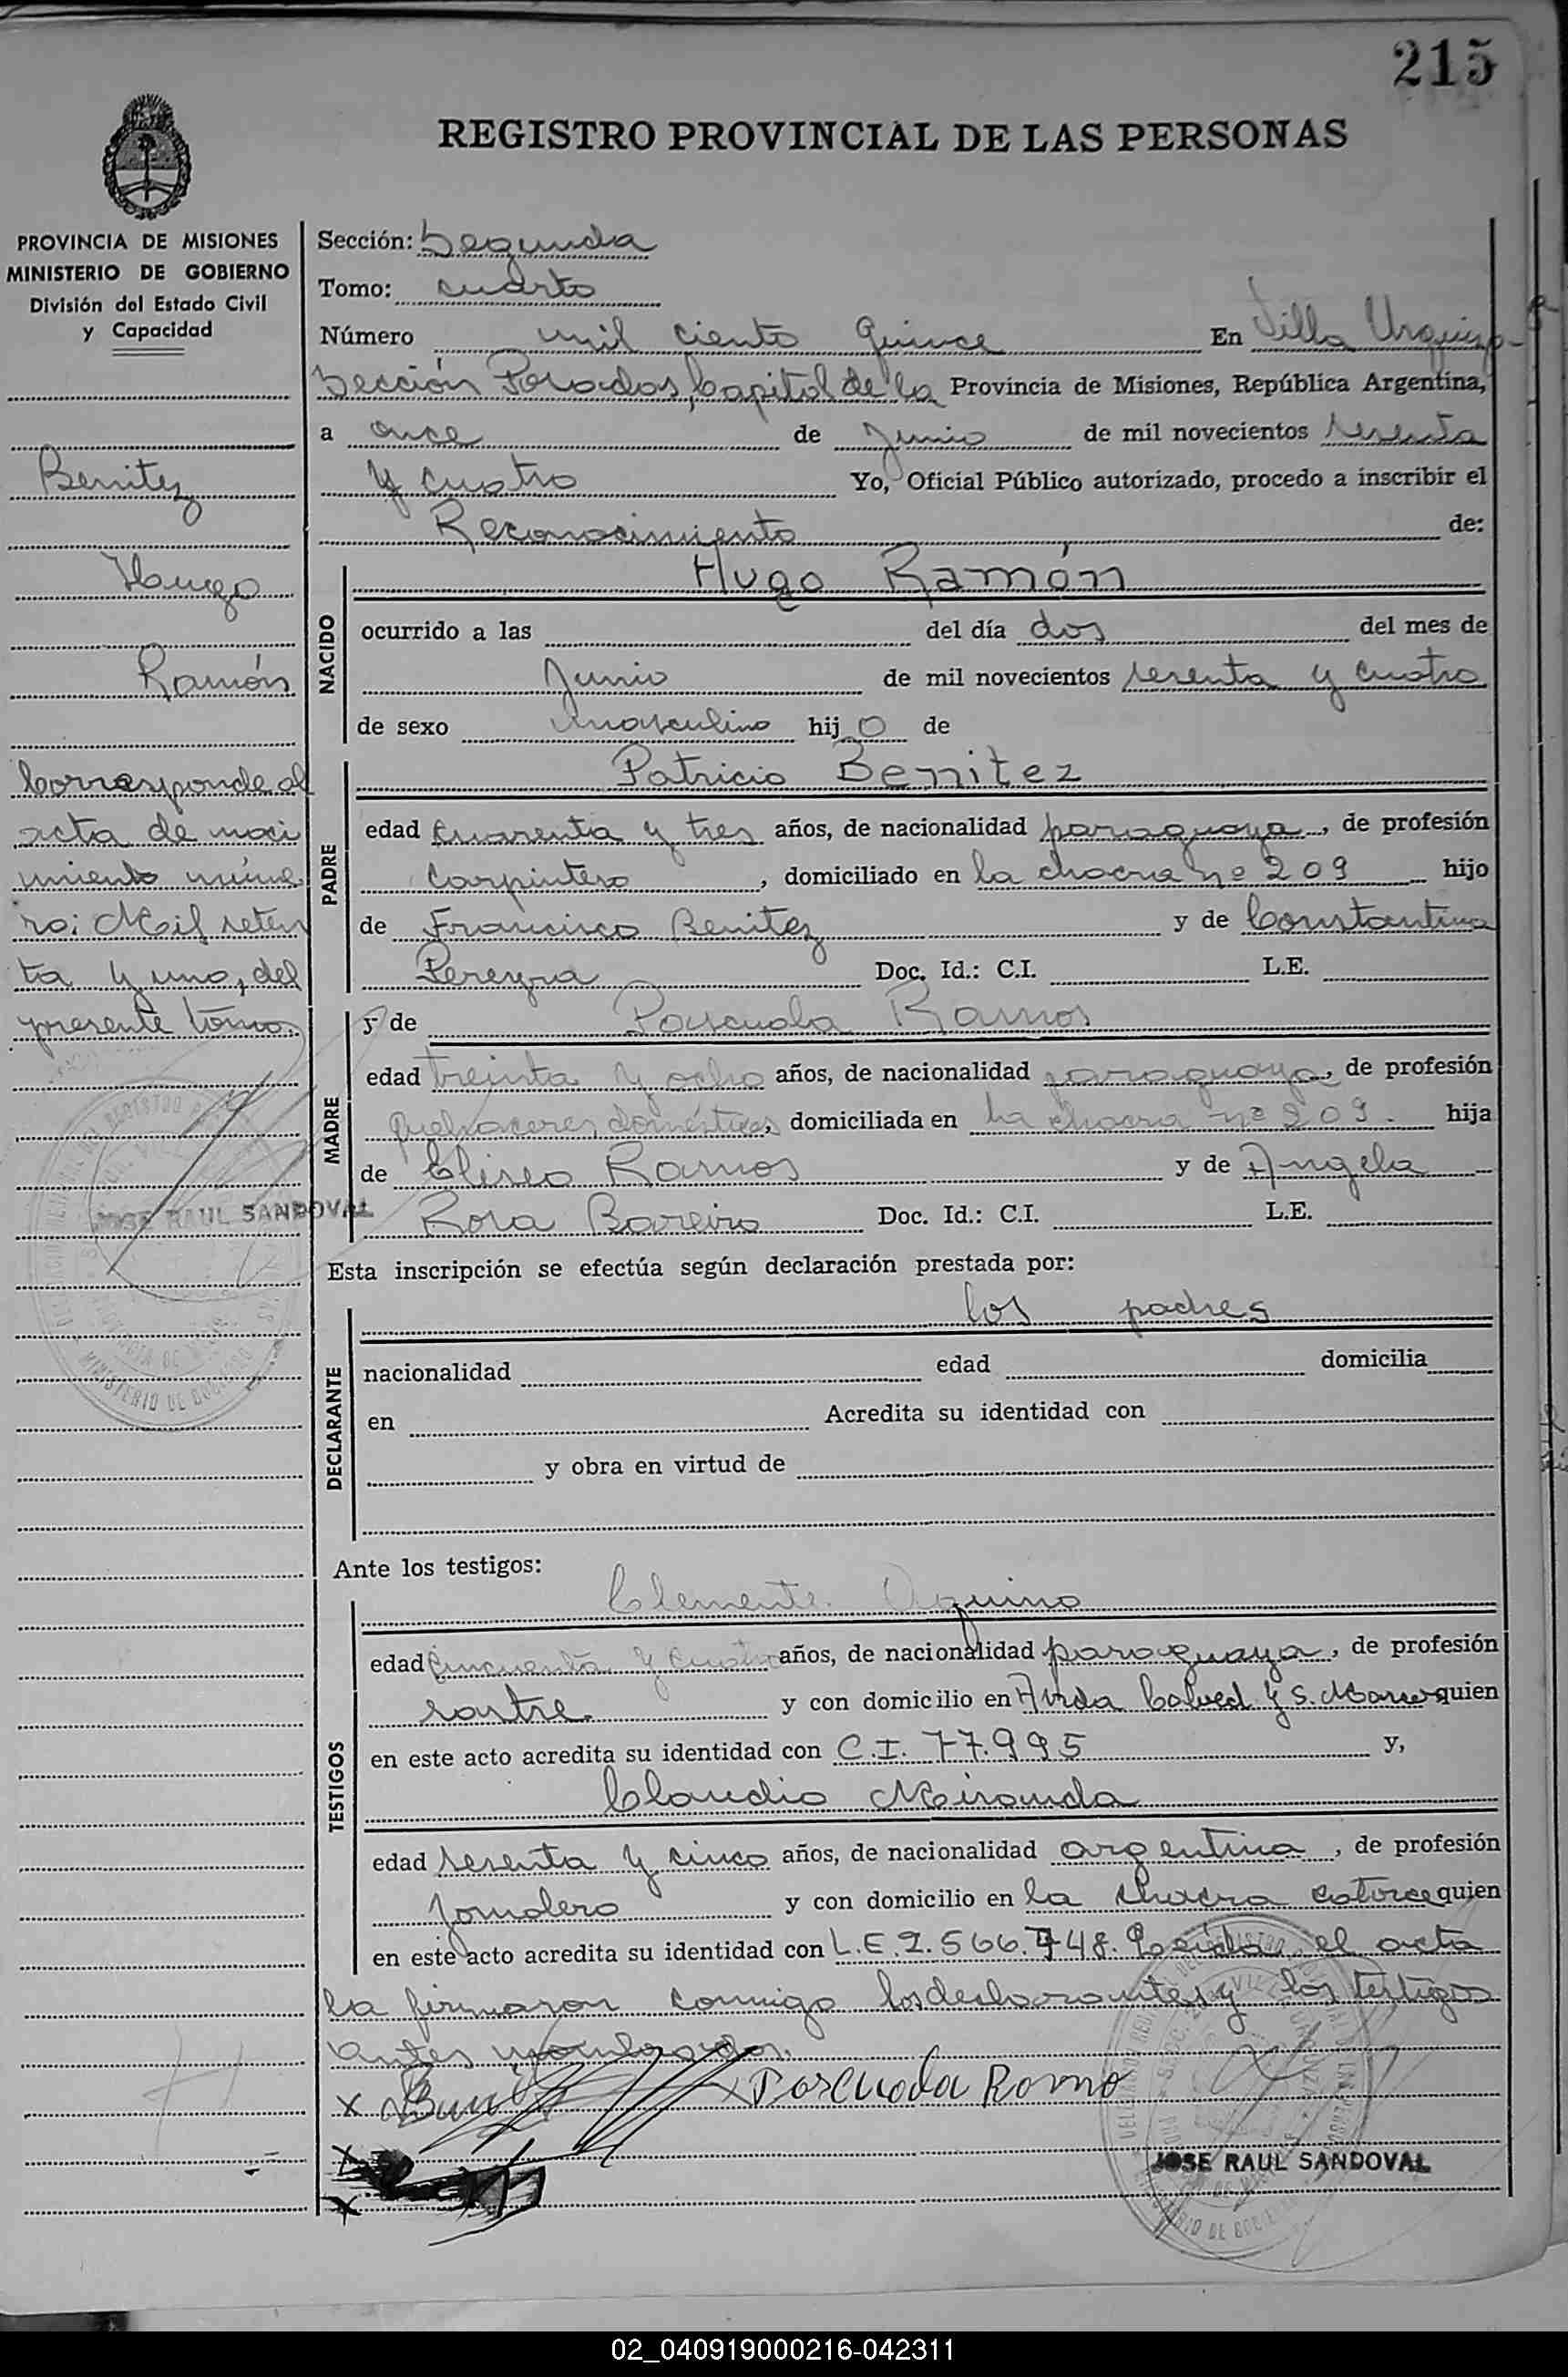 215
REGISTRO PROVINCIAL DE LAS PERSONAS
PROVINCIA DE MISIONES
MINISTERIO DE GOBIERNO
División del Estado Civil
y Capacidad
Benitez
Hugo
Ramón
Corresponde al
acta de naci
miento núme
ro: Mil seten
ta y uno, del
presente tomo.
JOSE RAUL SANDOVAL
Sección: Segunda
Tomo: cuarto
Número mil ciento quince En Villa Urquiza
Sección Posadas, Capital de la Provincia de Misiones, República Argentina,
a once de Junio de mil novecientos sesenta
y cuatro Yo, Oficial Público autorizado, procedo a inscribir el
Reconocimiento de:
NACIDO
Hugo Ramón
ocurrido a las del día dos del mes de
Junio de mil novecientos sesenta y cuatro
de sexo masculino hij o de
PADRE
Patricio Benitez
edad cuarenta y tres años, de nacionalidad paraguaya, de profesión
Carpintero, domiciliado en la chacra nº 209 hijo
de Francisco Benitez y de Constantina
Pereyra Doc. Id.: C.I. L.E.
MADRE
y de Pascuala Ramos
edad treinta y ocho años, de nacionalidad paraguaya, de profesión
quehaceres domésticos, domiciliada en la chacra nº 209. hija
de Eliseo Ramos y de Angela
Rosa Bareiro Doc. Id.: C.I. L.E.
Esta inscripción se efectúa según declaración prestada por:
DECLARANTE
los padres
nacionalidad edad domicilia
en Acredita su identidad con
y obra en virtud de
Ante los testigos:
TESTIGOS
Clemente Aquino
edad cincuenta y cuatro años, de nacionalidad paraguaya, de profesión
sastre. y con domicilio en Avda y S. quien
en este acto acredita su identidad con C.I. 77.995 y,
Claudio Miranda
edad sesenta y cinco años, de nacionalidad argentina, de profesión
Jornalero y con domicilio en la chacra catorce quien
en este acto acredita su identidad con L.E. 2.566.748. Leída el acta
la firmaron conmigo los declarantes y los testigos
antes
x x Pascuala Ramo
x
x
JOSE RAUL SANDOVAL
02_040919000216-042311